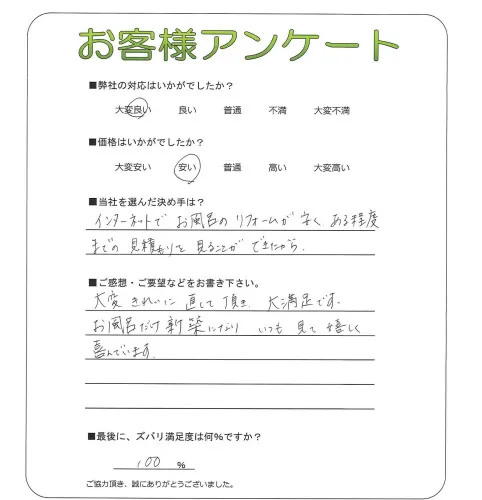 お客様アンケート
■弊社の対応はいかがでしたか？
大変良い 良い 普通 不満 大変不満
■価格はいかがでしたか？
大変安い 安い 普通 高い 大変高い
■当社を選んだ決め手は？
インターネットで お風呂のリフォームが 安く ある程度
までの 見積もりを 見ることが できたから.
■ご感想・ご要望などをお書き下さい。
大変 きれいに 直して 頂き 大満足です.
お風呂だけ 新築になり いつも 見て 嬉しく
喜んでいます.
■最後に、ズバリ満足度は何％ですか？
100 %
ご協力頂き、誠にありがとうございました。